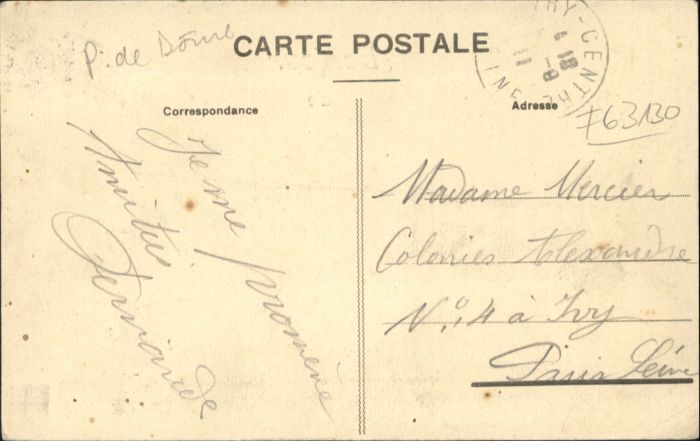 P. de Dôme
CARTE POSTALE
RY-CENTR
18
9
11
Correspondance
Adresse
763130
Je me promène
Amitiés
Fernande
Madame Mercier
Colonies Alexandre
N° 4 à Ivry
Paris Seine